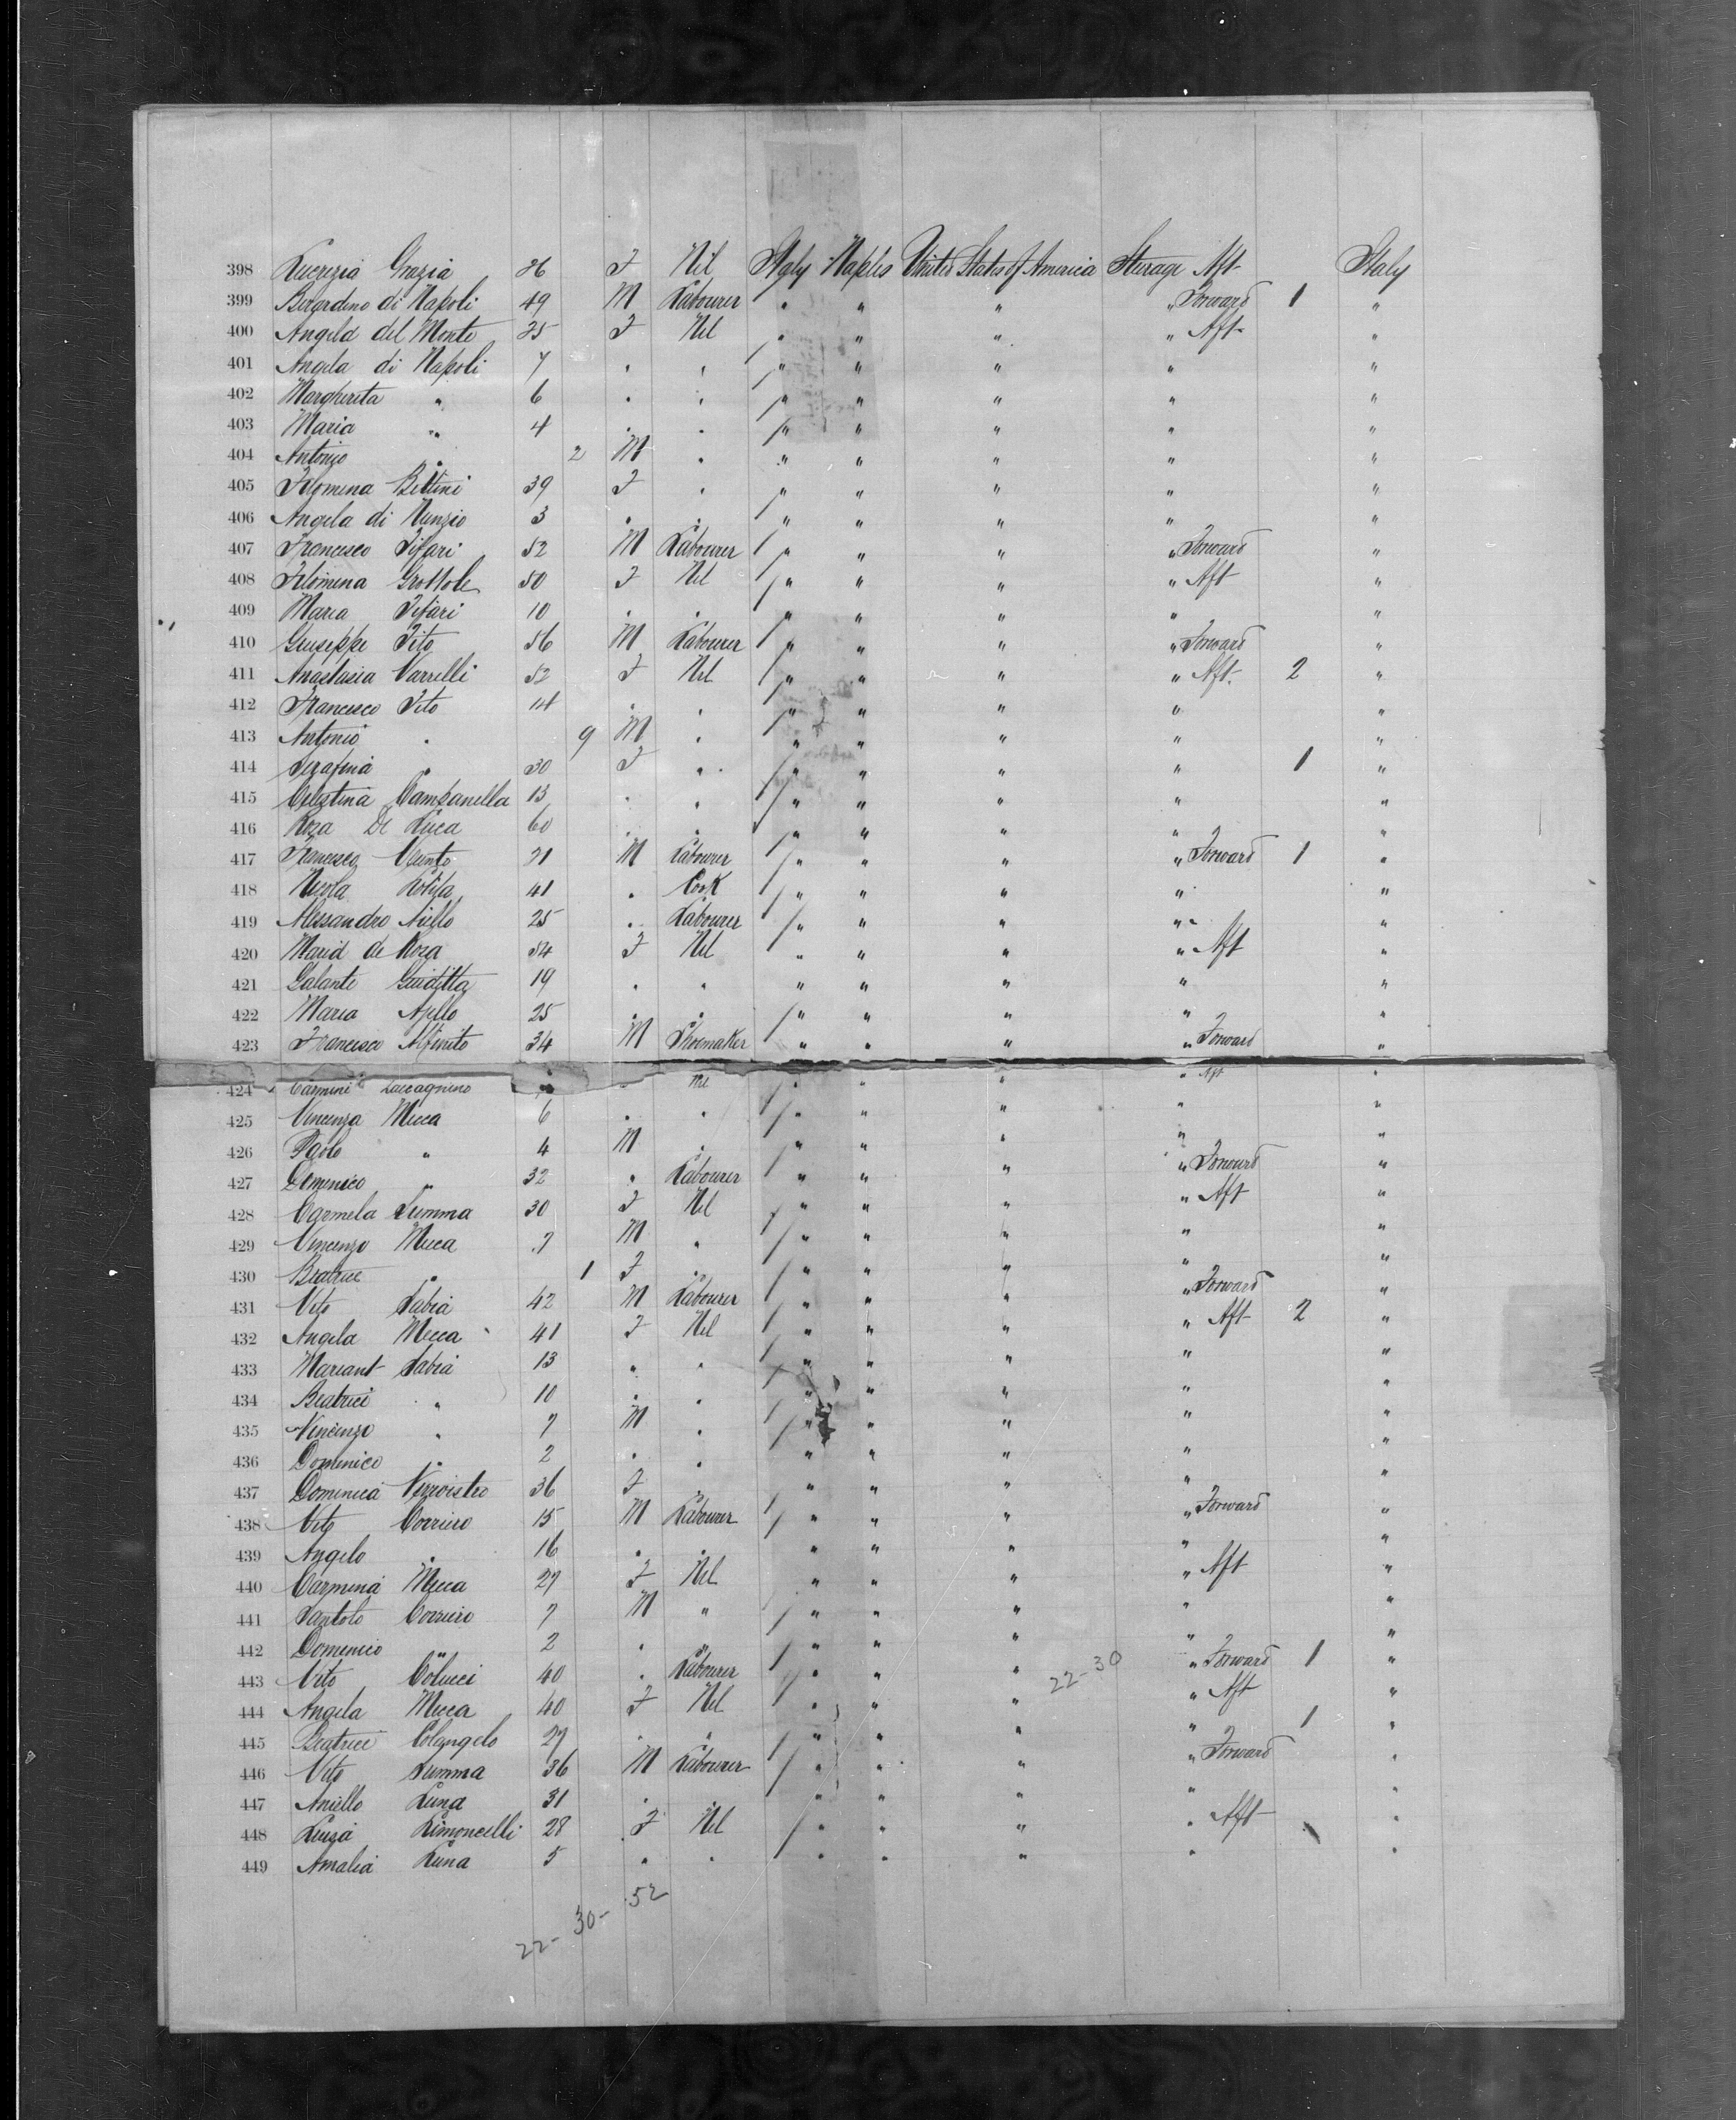 398 Lucrezia Grazia 26 F Nil Italy Naples United States of America Sterage Aft Italy
399 Berardino di Napoli 49 M Labourer " " " " Forward 1 "
400 Angela del Monte 35 F Nil " " " " Aft "
401 Angela di Napoli 7 " " " " " " "
402 Margherita " 6 " " " " " " "
403 Maria " 4 " " " " " " "
404 Antonio " 2 M " " " " " "
405 Filomena Bettini 39 F " " " " " "
406 Angela di Nunzio 3 " " " " " " "
407 Francesco Tifari 52 M Labourer " " " " Forward "
408 Filomena Grottole 50 F Nil " " " " Aft "
409 Maria Tifari 10 " " " " " " "
410 Giuseppe Tito 56 M Labourer " " " " Forward "
411 Anastasia Varrelli 52 F Nil " " " " Aft 2 "
412 Francesco Tito 14 " " " " " " "
413 Antonio " 9 M " " " " " "
414 Serafina " 30 F " " " " " 1 "
415 Celestina Campanella 13 " " " " " " "
416 Rosa De Luca 60 " " " " " " "
417 Francesco 21 M Labourer " " " " Forward 1 "
418 Nicola 41 " Cook " " " " "
419 Alessandro Aiello 25 " Labourer " " " " "
420 Maria de Rosa 54 F Nil " " " " Aft "
421 Galante Giuditta 19 " " " " " " "
422 Maria Ajello 25 " " " " " " "
423 Francesco Alfinito 34 M Shoemaker " " " " Forward "
424 Carmine Zaccagnino " Nil " " " " Aft "
425 Vincenza Mecca 6 " " " " " " "
426 Paolo " 4 M " " " " " "
427 Domenico " 32 " Labourer " " " " Forward "
428 Carmela Summa 30 F Nil " " " " Aft "
429 Vincenzo Mecca 7 M " " " " " "
430 Beatrice " 1 F " " " " " "
431 Vito Sabia 42 M Labourer " " " " Forward "
432 Angela Mecca 41 F Nil " " " " Aft 2 "
433 Mariant Sabia 13 " " " " " " "
434 Beatrice " 10 " " " " " " "
435 Vincenzo " 7 M " " " " " "
436 Domenico " 2 " " " " " " "
437 Domenica 36 F " " " " " "
438 Vito Corriero 15 M Labourer " " " " Forward "
439 Angelo " 16 " " " " " " "
440 Carmina Mecca 27 F Nil " " " " Aft "
441 Corriero 7 M " " " " " "
442 Domenico " 2 " " " " " " "
443 Vito Colucci 40 " Labourer " " " 22-30 " Forward 1 "
444 Angela Mecca 40 F Nil " " " " Aft "
445 Beatrice Colangelo 27 " " " " " " 1 "
446 Vito Summa 36 M Labourer " " " " Forward "
447 Aniello Luna 31 " " " " " " "
448 Luisa Limoncelli 28 F Nil " " " " Aft "
449 Amalia Luna 5 " " " " " " "
22- 30- 52